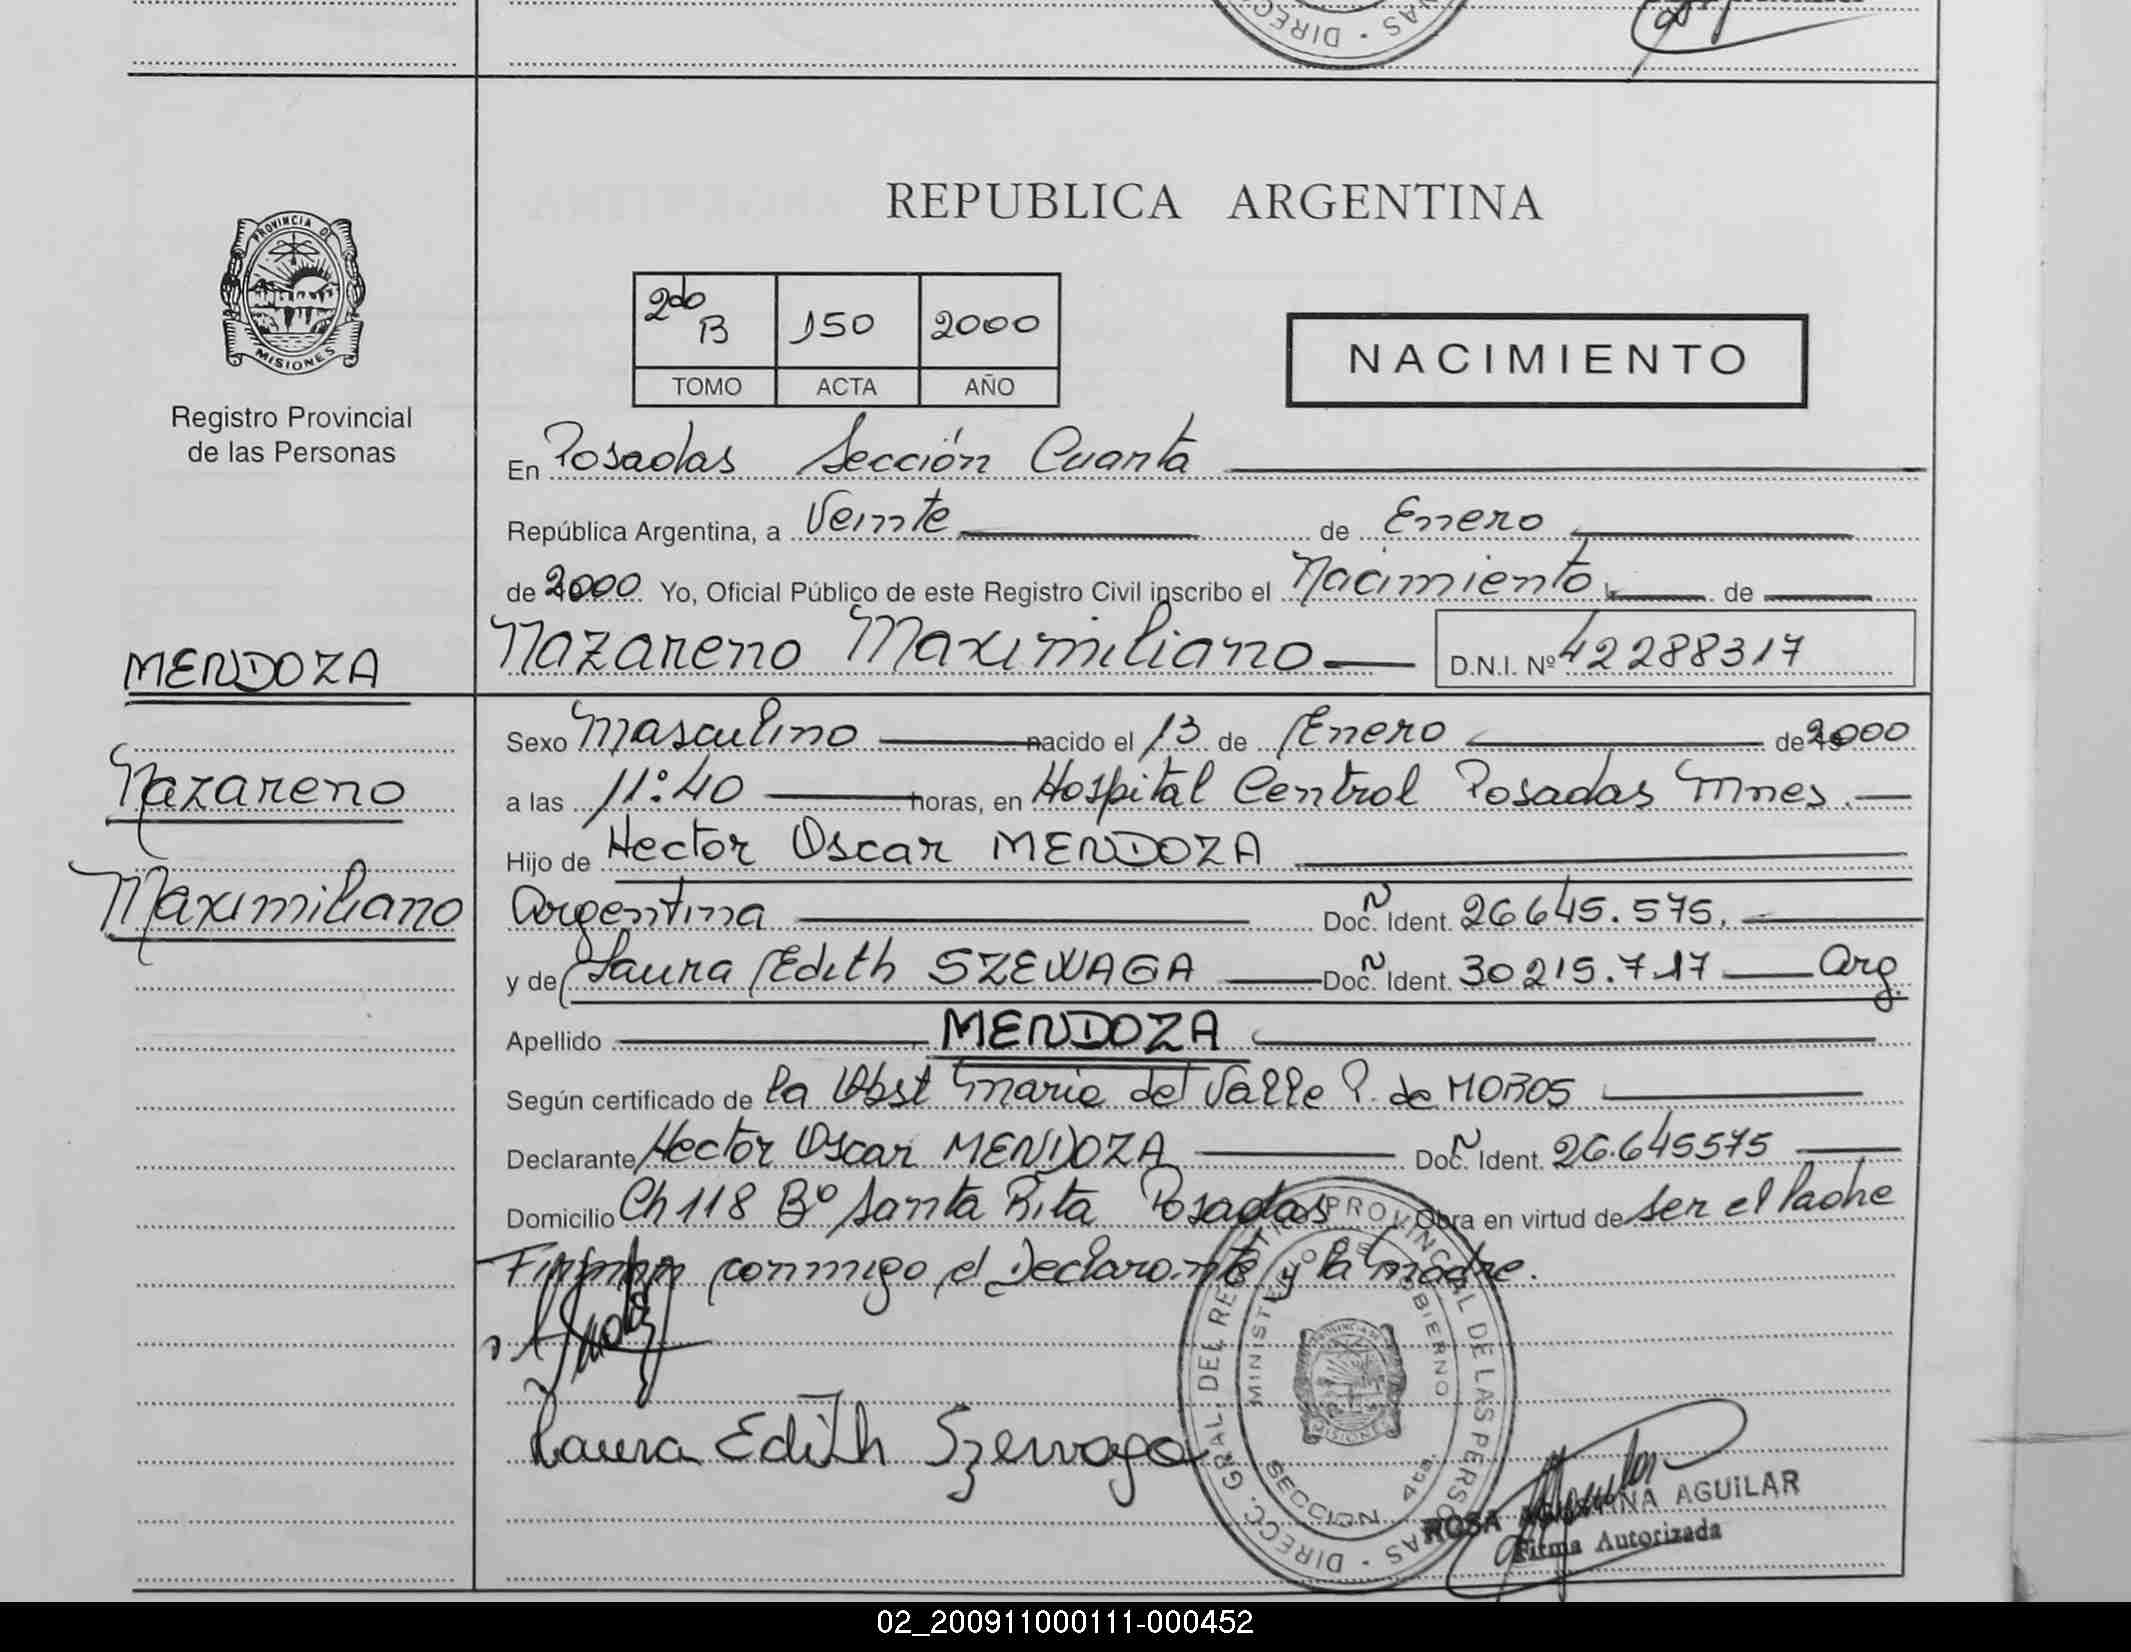 DIRECC
NAS
PROVINCIA DE
MISIONES
Registro Provincial
de las Personas
REPUBLICA ARGENTINA
2do B 150 2000
TOMO ACTA AÑO
NACIMIENTO
En Posadas Sección Cuarta
República Argentina, a Veinte de Enero
de 2000 Yo, Oficial Público de este Registro Civil inscribo el Nacimiento de
MENDOZA
Nazareno
Maximiliano
Nazareno Maximiliano D.N.I. Nº 42288317
Sexo Masculino nacido el 13 de Enero de 2000
a las 11:40 horas, en Hospital Central Posadas Mnes.
Hijo de Hector Oscar MENDOZA
Argentina Doc. Ident. 26645.575.
y de Laura Edith SZEWAGA Doc. Ident. 30215.717 Arg.
Apellido MENDOZA
Según certificado de la Obst Maria del Valle P. de MOROS
Declarante Hector Oscar MENDOZA Doc. Ident. 26.645575
Domicilio Ch 118 Bº Santa Rita Posadas Obra en virtud de ser el Padre
Firman conmigo el Declarante y la madre.
Laura Edith Szewaga
DIRECC. GRAL. DEL REGISTRO PROVINCIAL DE LAS PERSONAS
MINISTERIO DE GOBIERNO
SECCION 4ta.
PROVINCIA DE
MISIONES
ROSA AGUSTINA AGUILAR
Firma Autorizada
02_200911000111-000452